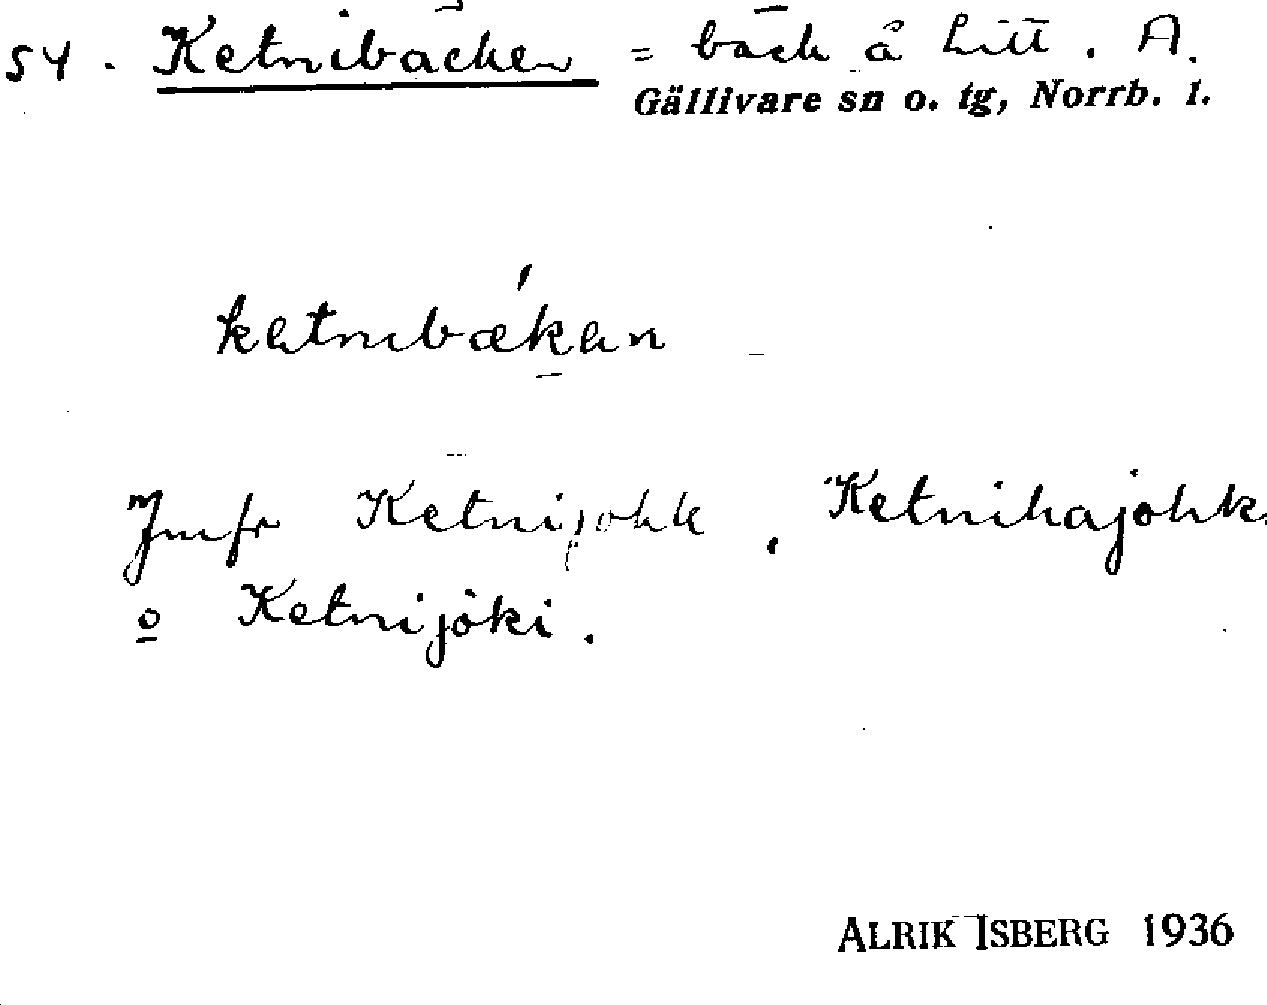 54. Ketnibäcken = bäck å Litt. A.
Gällivare sn o. tg, Norrb. l.
ketnibæken
Jmfr Ketnijohk, Ketnihajohk
o Ketnijoki.
ALRIK ISBERG 1936